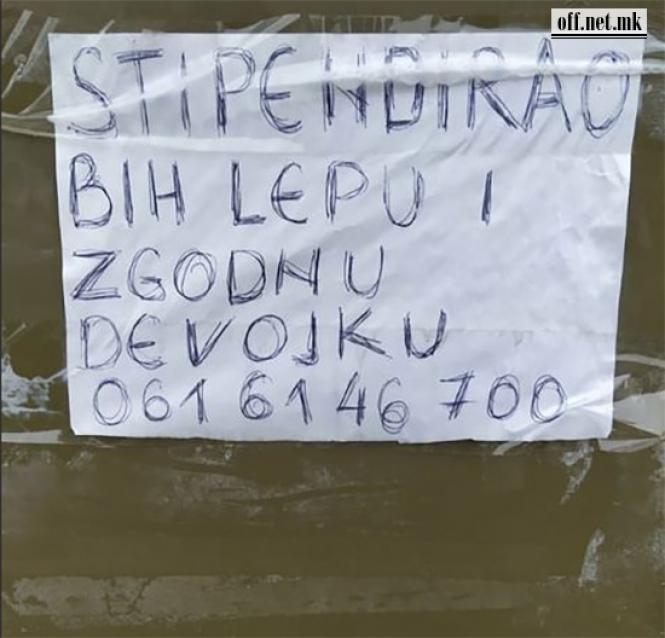 off.net.mk
STIPENDIRAO
BIH LEPU I
ZGODNU
DEVOJKU
061 61 46 700